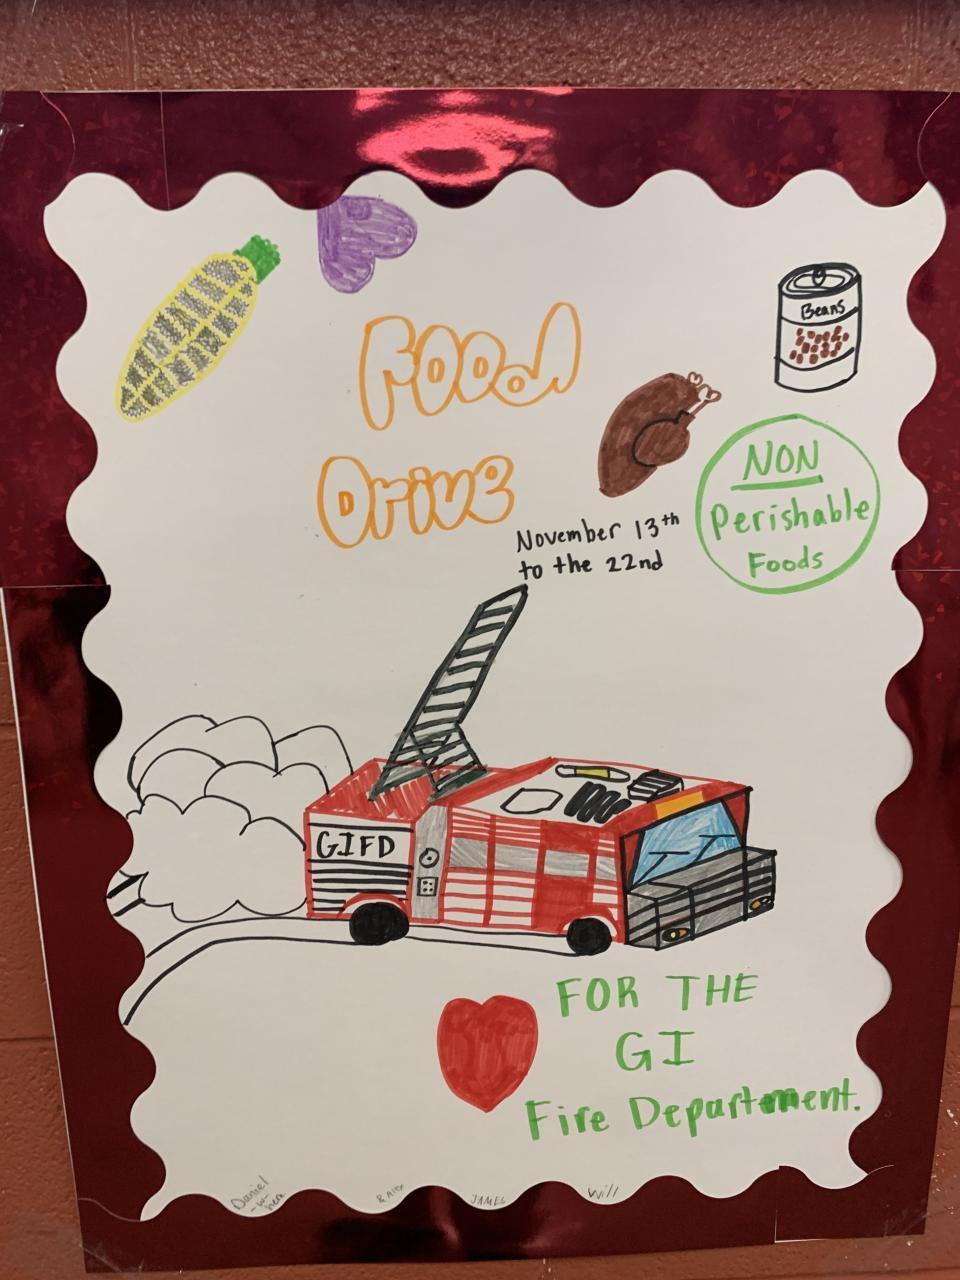 Food
Drive
Beans
NON
Perishable
Foods
November 13th
to the 22nd
GIFD
FOR THE
GI
Fire Department.
Daniel
-w-
& Alex
JAMES
Will